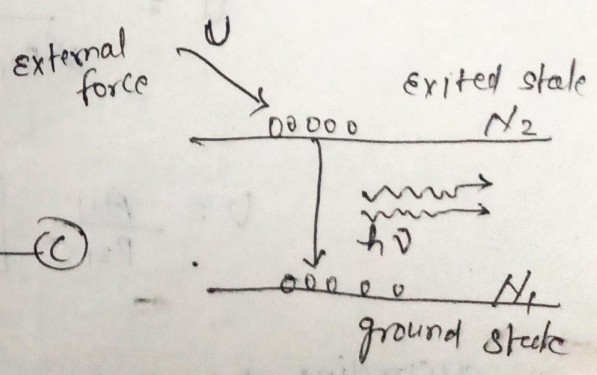 external
force
U
Exited state
N2
hν
C
N1
ground state